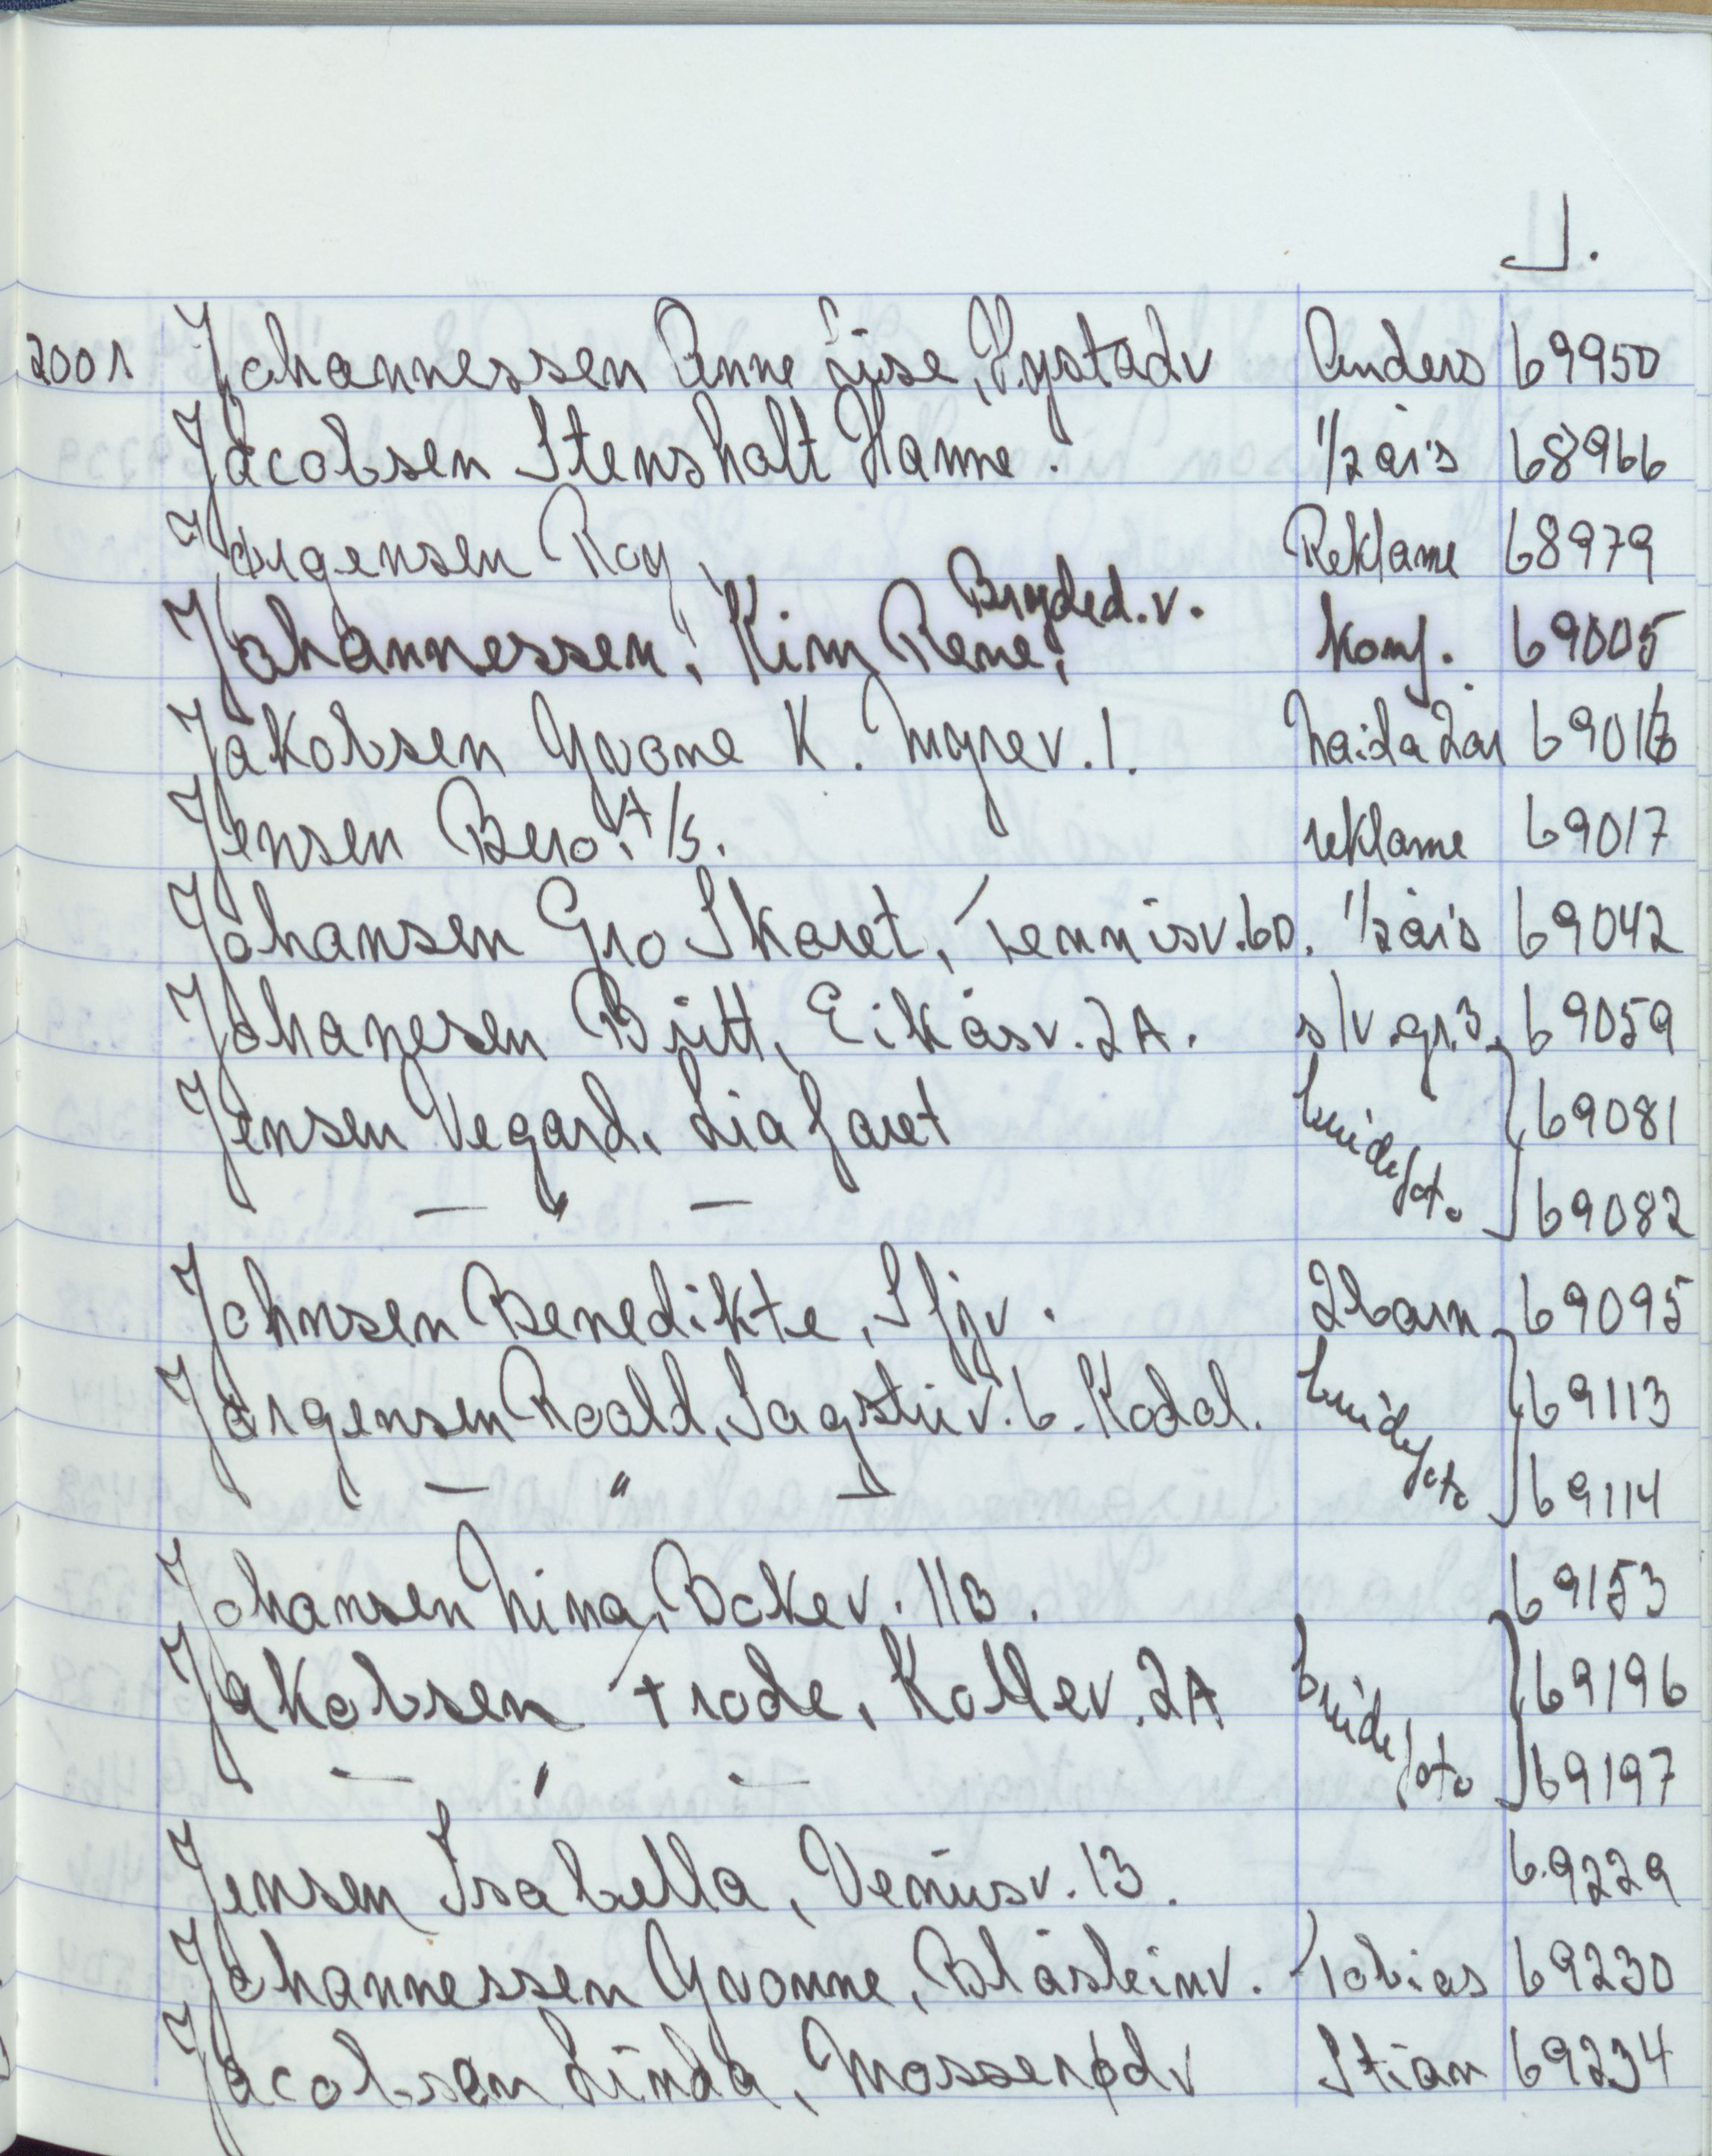 J.
2001 Johannessen Anne Lise, Nystadv Anders 69950
Jacobsen Stensholt Hanne. 1/2 års 68966
Jørgensen Roy, Reklame 68979
Johannessen, Kim Rene, Bryded.v. konf. 69005
Jakobsen Yvone K. Myrev. 1. Naida 2år 69016
Jensen Bero. A/S. reklame 69017
Johansen Gro Skaret, Tennisv. 6D. 1/2 års 69042
Johanesen Britt, Eikåsv. 2A. s/v. gr. 3. 69059
Jensen Vegard, Liafaret brudefoto 69081
— " — 69082
Johnsen Benedikte, Sfjv. 2 barn 69095
Jørgensen Roald, Sagsliv. 6. Kodal. brudefoto 69113
— " — 69114
Johansen Nina, Bøkev. 11B. 69153
Jakobsen Frode, Kollev. 2A brudefoto 69196
— " — 69197
Jensen Isabella, Venusv. 13. 69229
Johannessen Yvonne, Blåsteinv. Tobias 69230
Jacobsen Linda, Mosserødv Stian 69234